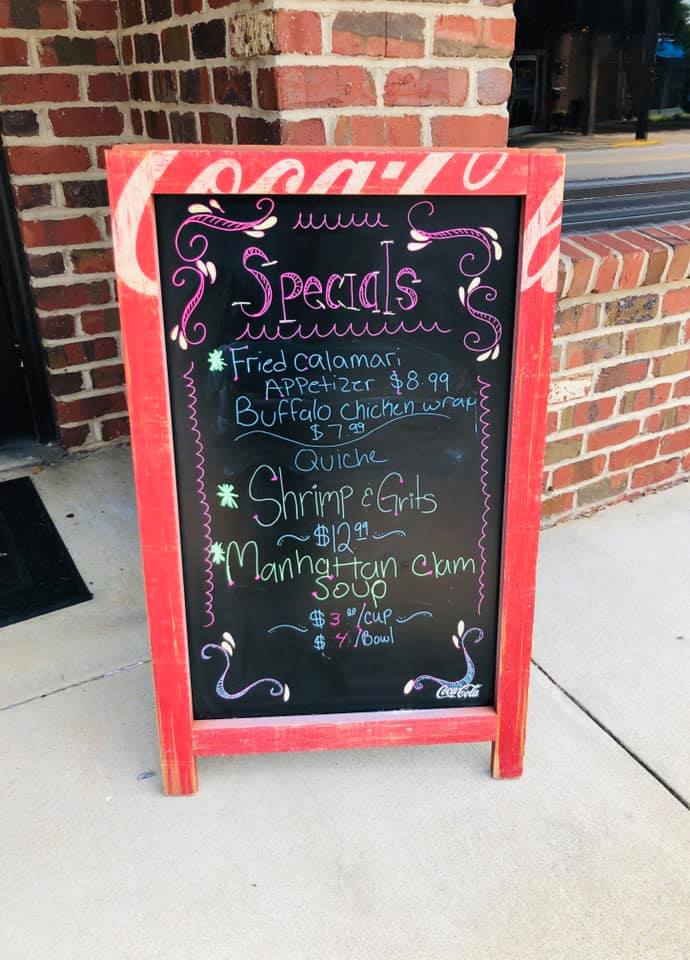 Coca-Cola
Specials
Fried calamari
Appetizer $8.99
Buffalo chicken wrap
$7.99
Quiche
Shrimp & Grits
$12.99
Manhattan clam
Soup
$3.00/cup
$4./Bowl
Coca-Cola